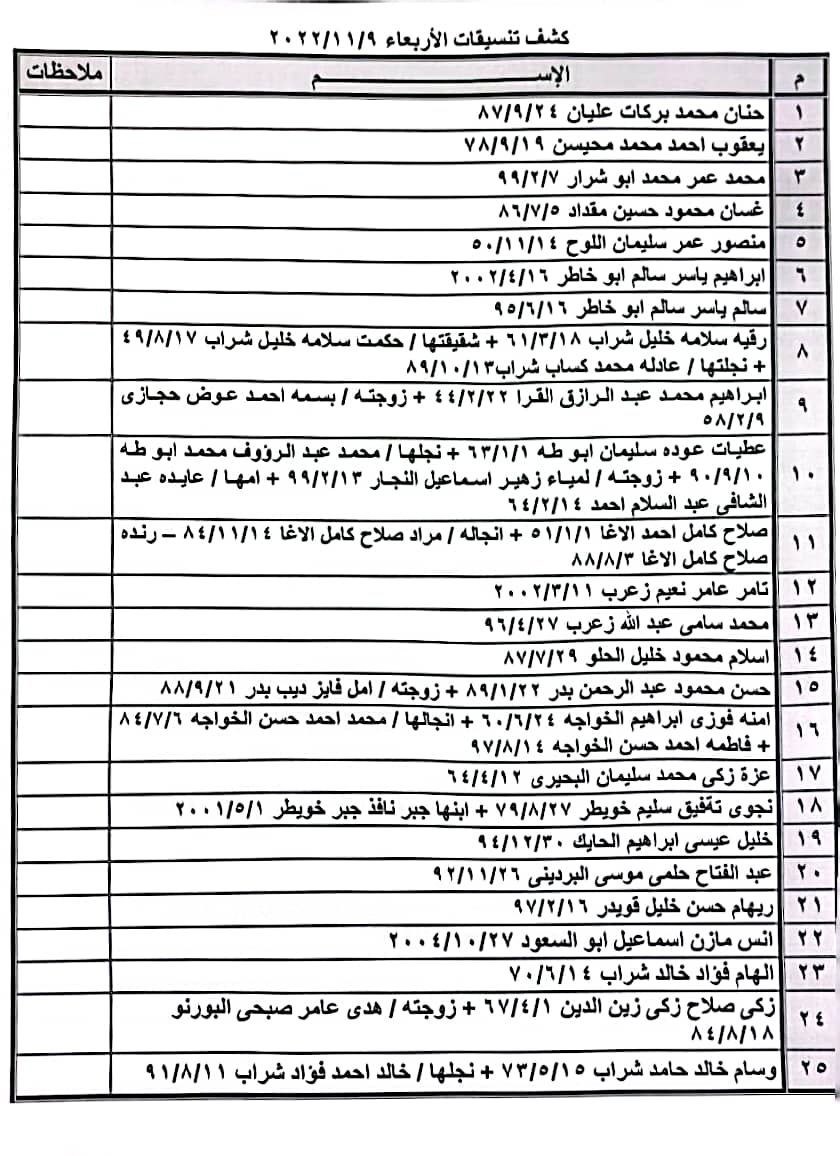 كشف تنسيقات الأربعاء ٢٠٢٢/١١/٩
م الإســـــــــم ملاحظات
١ حنان محمد بركات عليان ٨٧/٩/٢٤
٢ يعقوب احمد محمد محيسن ٧٨/٩/١٩
٣ محمد عمر محمد ابو شرار ٩٩/٢/٧
٤ غسان محمود حسين مقداد ٨٦/٧/٥
٥ منصور عمر سليمان اللوح ٥٠/١١/١٤
٦ ابراهيم ياسر سالم ابو خاطر ٢٠٠٢/٤/١٦
٧ سالم ياسر سالم ابو خاطر ٩٥/٦/١٦
٨ رقيه سلامه خليل شراب ٦١/٣/١٨ + شقيقتها / حكمت سلامه خليل شراب ٤٩/٨/١٧
+ نجلتها / عادله محمد كساب شراب٨٩/١٠/١٣
٩ ابراهيم محمد عبد الرازق القرا ٤٤/٢/٢٢ + زوجته / بسمه احمد عوض حجازى
٥٨/٢/٩
١٠ عطيات عوده سليمان ابو طه ٦٣/١/١ + نجلها / محمد عبد الرؤوف محمد ابو طه
٩٠/٩/١٠ + زوجته / لمياء زهير اسماعيل النجار ٩٩/٢/١٣ + امها / عايده عبد
الشافى عبد السلام احمد ٦٤/٢/١٤
١١ صلاح كامل احمد الاغا ٥١/١/١ + انجاله / مراد صلاح كامل الاغا ٨٤/١١/١٤ – رنده
صلاح كامل الاغا ٨٨/٨/٣
١٢ تامر عامر نعيم زعرب ٢٠٠٢/٣/١١
١٣ محمد سامى عبد الله زعرب ٩٦/٤/٢٧
١٤ اسلام محمود خليل الحلو ٨٧/٧/٢٩
١٥ حسن محمود عبد الرحمن بدر ٨٩/١/٢٢ + زوجته / امل فايز ديب بدر ٨٨/٩/٢١
١٦ امنه فوزى ابراهيم الخواجه ٦٠/٦/٢٤ + انجالها / محمد احمد حسن الخواجه ٨٤/٧/٦
+ فاطمه احمد حسن الخواجه ٩٧/٨/١٤
١٧ عزة زكى محمد سليمان البحيرى ٦٤/٤/١٢
١٨ نجوى توفيق سليم خويطر ٧٩/٨/٢٧ + ابنها جبر نافذ جبر خويطر ٢٠٠١/٥/١
١٩ خليل عيسى ابراهيم الحايك ٩٤/١٢/٣٠
٢٠ عبد الفتاح حلمى موسى البردينى ٩٢/١١/٢٦
٢١ ريهام حسن خليل قويدر ٩٧/٢/١٦
٢٢ انس مازن اسماعيل ابو السعود ٢٠٠٤/١٠/٢٧
٢٣ الهام فؤاد خالد شراب ٧٠/٦/١٤
٢٤ زكى صلاح زكى زين الدين ٦٧/٤/١ + زوجته / هدى عامر صبحى البورنو
٨٤/٨/١٨
٢٥ وسام خالد حامد شراب ٧٣/٥/١٥ + نجلها / خالد احمد فؤاد شراب ٩١/٨/١١